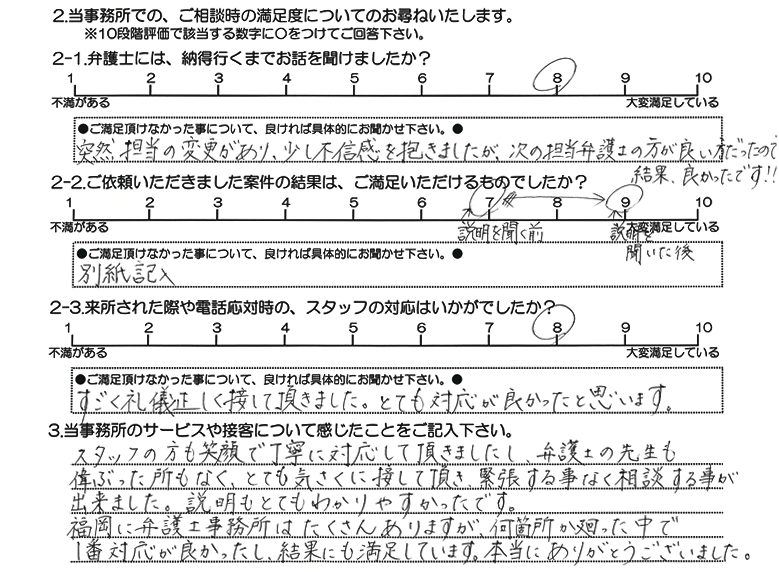 2.当事務所での、ご相談時の満足度についてのお尋ねいたします。
※10段階評価で該当する数字に○をつけてご回答下さい。
2-1.弁護士には、納得行くまでお話を聞けましたか？
1 2 3 4 5 6 7 8 9 10
不満がある 大変満足している
●ご満足頂けなかった事について、良ければ具体的にお聞かせ下さい。●
突然、担当の変更があり、少し不信感を抱きましたが、次の担当弁護士の方が良い方だったので
結果、良かったです!!
2-2.ご依頼いただきました案件の結果は、ご満足いただけるものでしたか？
1 2 3 4 5 6 7 8 9 10
不満がある 大変満足している
説明を聞く前 説明を
聞いた後
●ご満足頂けなかった事について、良ければ具体的にお聞かせ下さい。●
別紙記入
2-3.来所された際や電話応対時の、スタッフの対応はいかがでしたか？
1 2 3 4 5 6 7 8 9 10
不満がある 大変満足している
●ご満足頂けなかった事について、良ければ具体的にお聞かせ下さい。●
すごく礼儀正しく接して頂きました。とても対応が良かったと思います。
3.当事務所のサービスや接客について感じたことをご記入下さい。
スタッフの方も笑顔で丁寧に対応して頂きましたし、弁護士の先生も
偉ぶった所もなく、とても気さくに接して頂き、緊張する事なく相談する事が
出来ました。説明もとてもわかりやすかったです。
福岡に弁護士事務所はたくさんありますが、何箇所か廻った中で
1番対応が良かったし、結果にも満足しています。本当にありがとうございました。